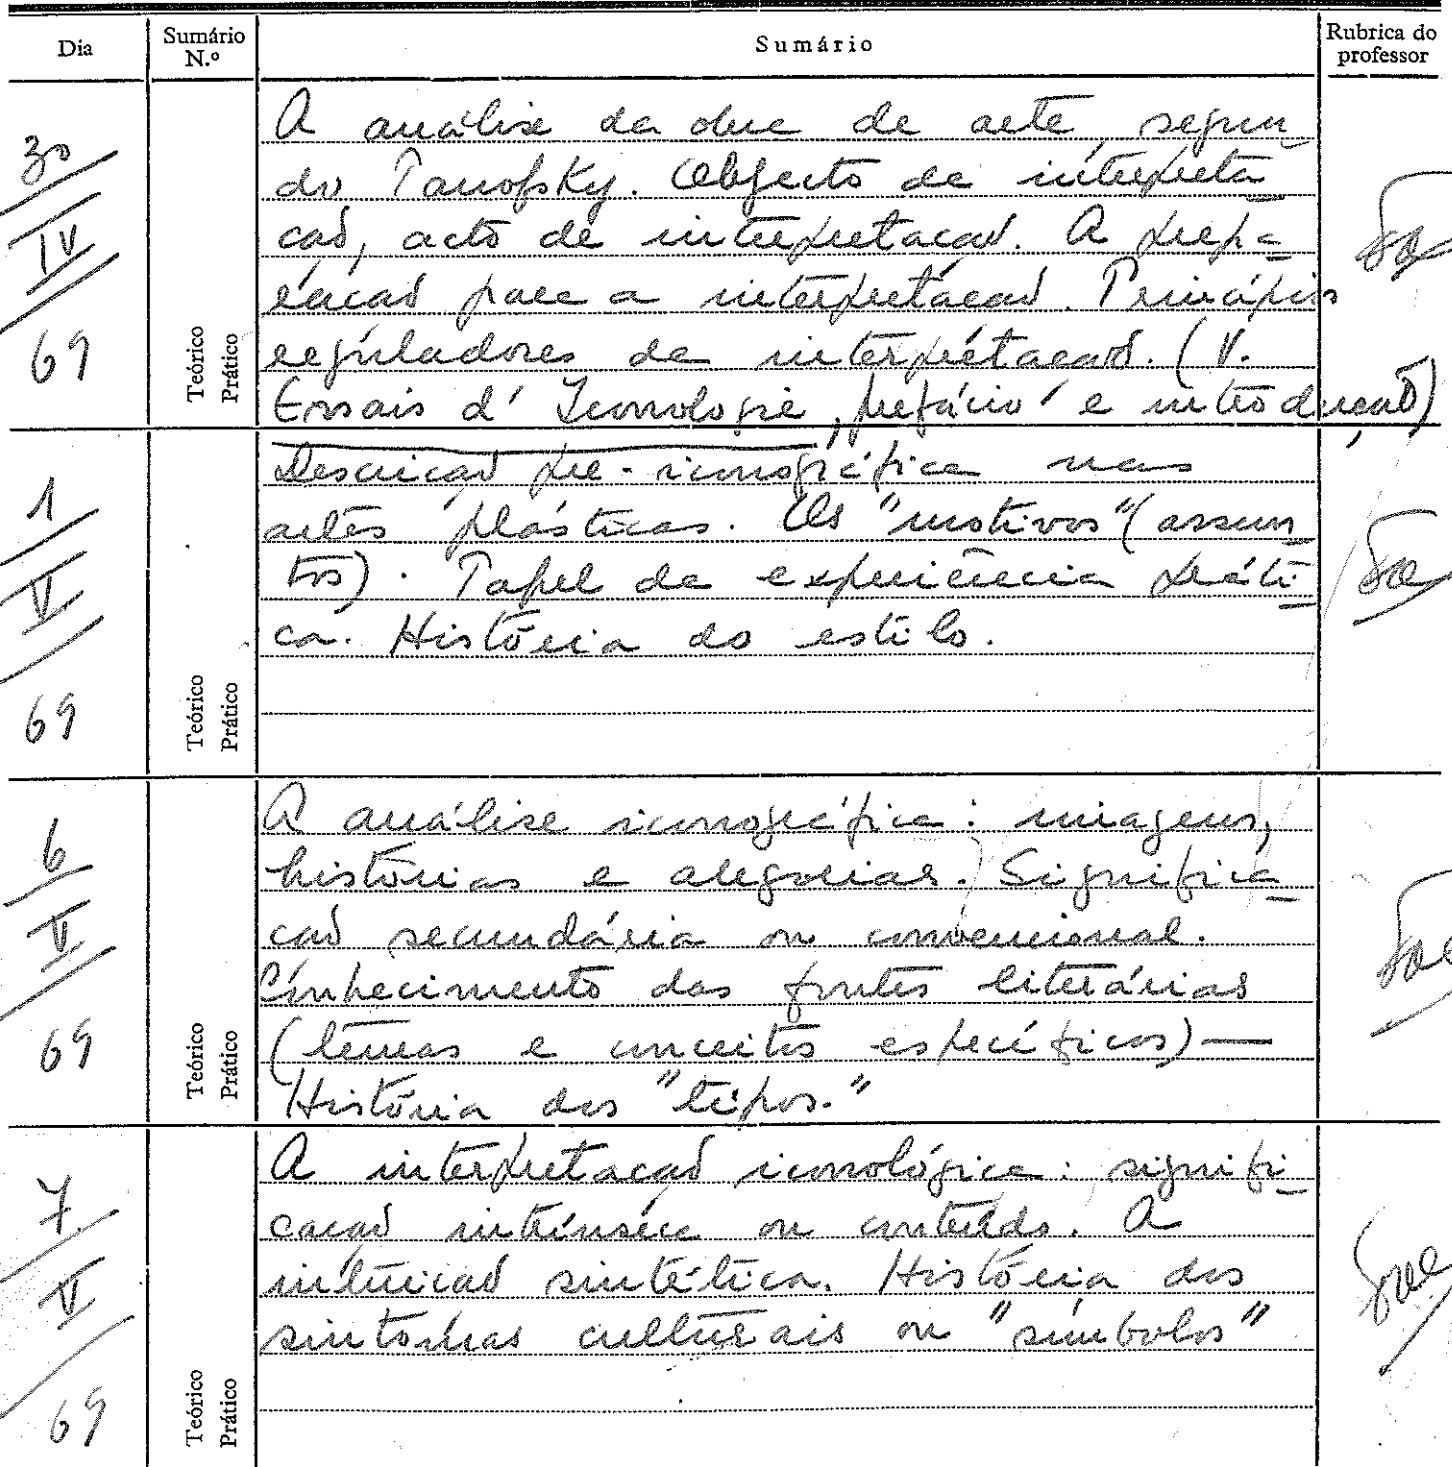 Dia
Sumário N.º
Sumário
Rubrica do professor
30
IV
69
Teórico
Prático
A análise da obra de arte, segun
do Panofsky. Objecto da interpreta
ção, acto de interpretação. A prepa
ração para a interpretação. Princípios
reguladores da interpretação. (V.
Essais d'Iconologie, prefácio e introdução)
1
V
69
Teórico
Prático
Descrição pré-iconográfica nas
artes plásticas. Os "motivos" (assun
tos). Papel da experiência práti
ca. História do estilo.
6
V
69
Teórico
Prático
A análise iconográfica: imagens,
histórias e alegorias. Significa
ção secundária ou convencional.
Conhecimento das fontes literárias
(temas e conceitos específicos) —
História dos "tipos."
7
V
69
Teórico
Prático
A interpretação iconológica: signifi
cação intrínseca ou conteúdo. A
intuição sintética. História dos
sintomas culturais ou "símbolos"